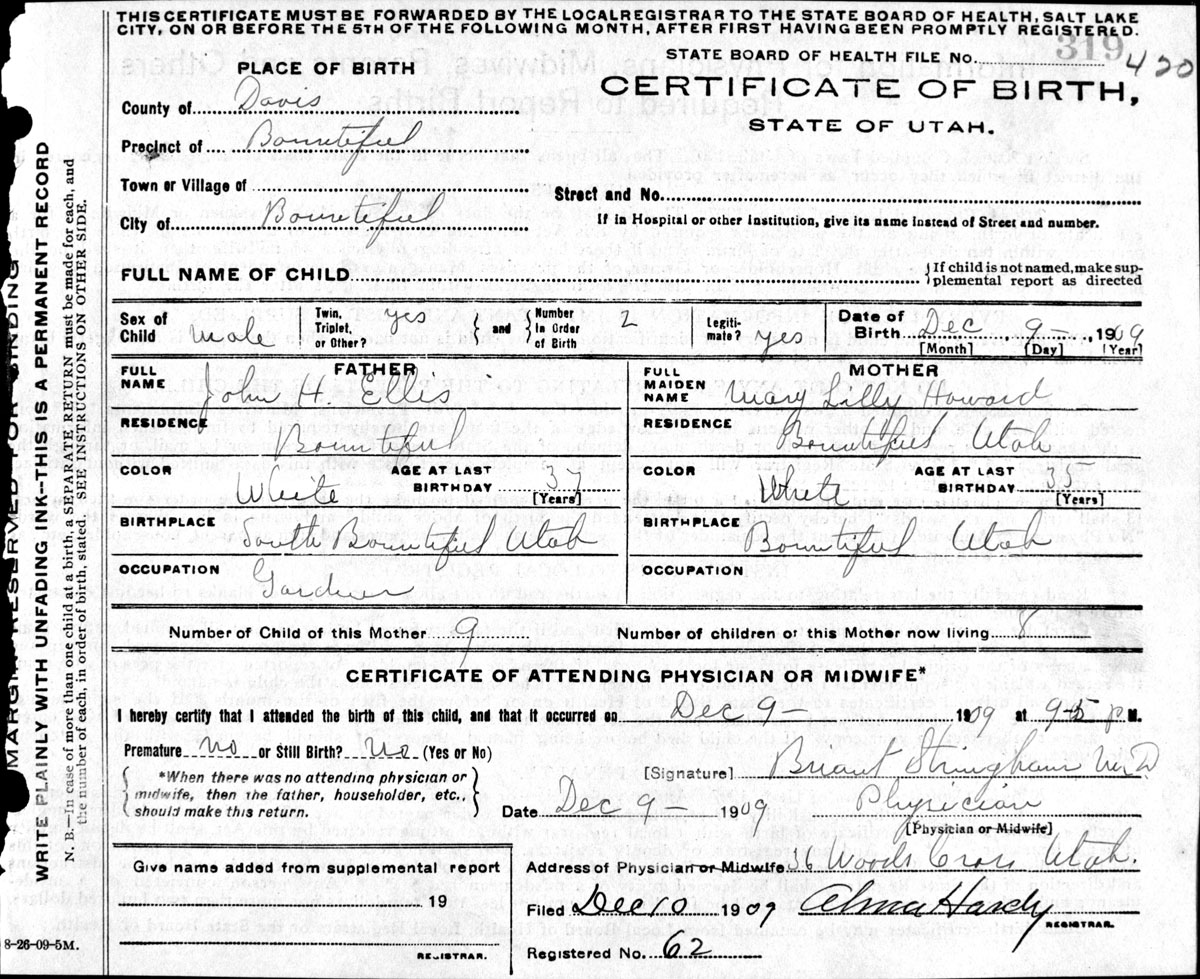 THIS CERTIFICATE MUST BE FORWARDED BY THE LOCAL REGISTRAR TO THE STATE BOARD OF HEALTH, SALT LAKE
CITY, ON OR BEFORE THE 5TH OF THE FOLLOWING MONTH, AFTER FIRST HAVING BEEN PROMPTLY REGISTERED.
319
STATE BOARD OF HEALTH FILE NO. 420
PLACE OF BIRTH
CERTIFICATE OF BIRTH,
STATE OF UTAH.
County of Davis
Precinct of Bountiful
Town or Village of
Street and No.
City of Bountiful
If in Hospital or other Institution, give its name instead of Street and number.
FULL NAME OF CHILD
} If child is not named, make sup-
plemental report as directed
Sex of Child male
Twin, Triplet, or Other? yes
and { Number in Order of Birth 2
Legiti- mate? yes
Date of Birth Dec 9 – 1909
[Month] [Day] [Year]
FATHER
FULL NAME John H. Ellis
RESIDENCE Bountiful
COLOR White
AGE AT LAST BIRTHDAY 37 [Years]
BIRTHPLACE South Bountiful Utah
OCCUPATION Gardner
MOTHER
FULL MAIDEN NAME Mary Lilly Howard
RESIDENCE Bountiful Utah
COLOR White
AGE AT LAST BIRTHDAY [Years]
BIRTHPLACE Bountiful Utah
OCCUPATION
Number of Child of this Mother 9
Number of children of this Mother now living 8
CERTIFICATE OF ATTENDING PHYSICIAN OR MIDWIFE*
I hereby certify that I attended the birth of this child, and that it occurred on Dec 9 – 1909 at P. M.
Premature no or Still Birth? No (Yes or No)
{ *When there was no attending physician or
midwife, then the father, householder, etc.,
should make this return. }
[Signature] Briant Stringham M.D
Date Dec 9 – 1909 Physician
[Physician or Midwife]
Give name added from supplemental report
19
REGISTRAR.
Address of Physician or Midwife Woods Cross Utah.
Filed Dec 10 1909 Alma Hardy
REGISTRAR.
Registered No. 62
8-26-09-5M.
MARGIN RESERVED FOR BINDING
WRITE PLAINLY WITH UNFADING INK--THIS IS A PERMANENT RECORD
N. B.—In case of more than one child at a birth, a SEPARATE RETURN must be made for each, and
the number of each, in order of birth, stated. SEE INSTRUCTIONS ON OTHER SIDE.